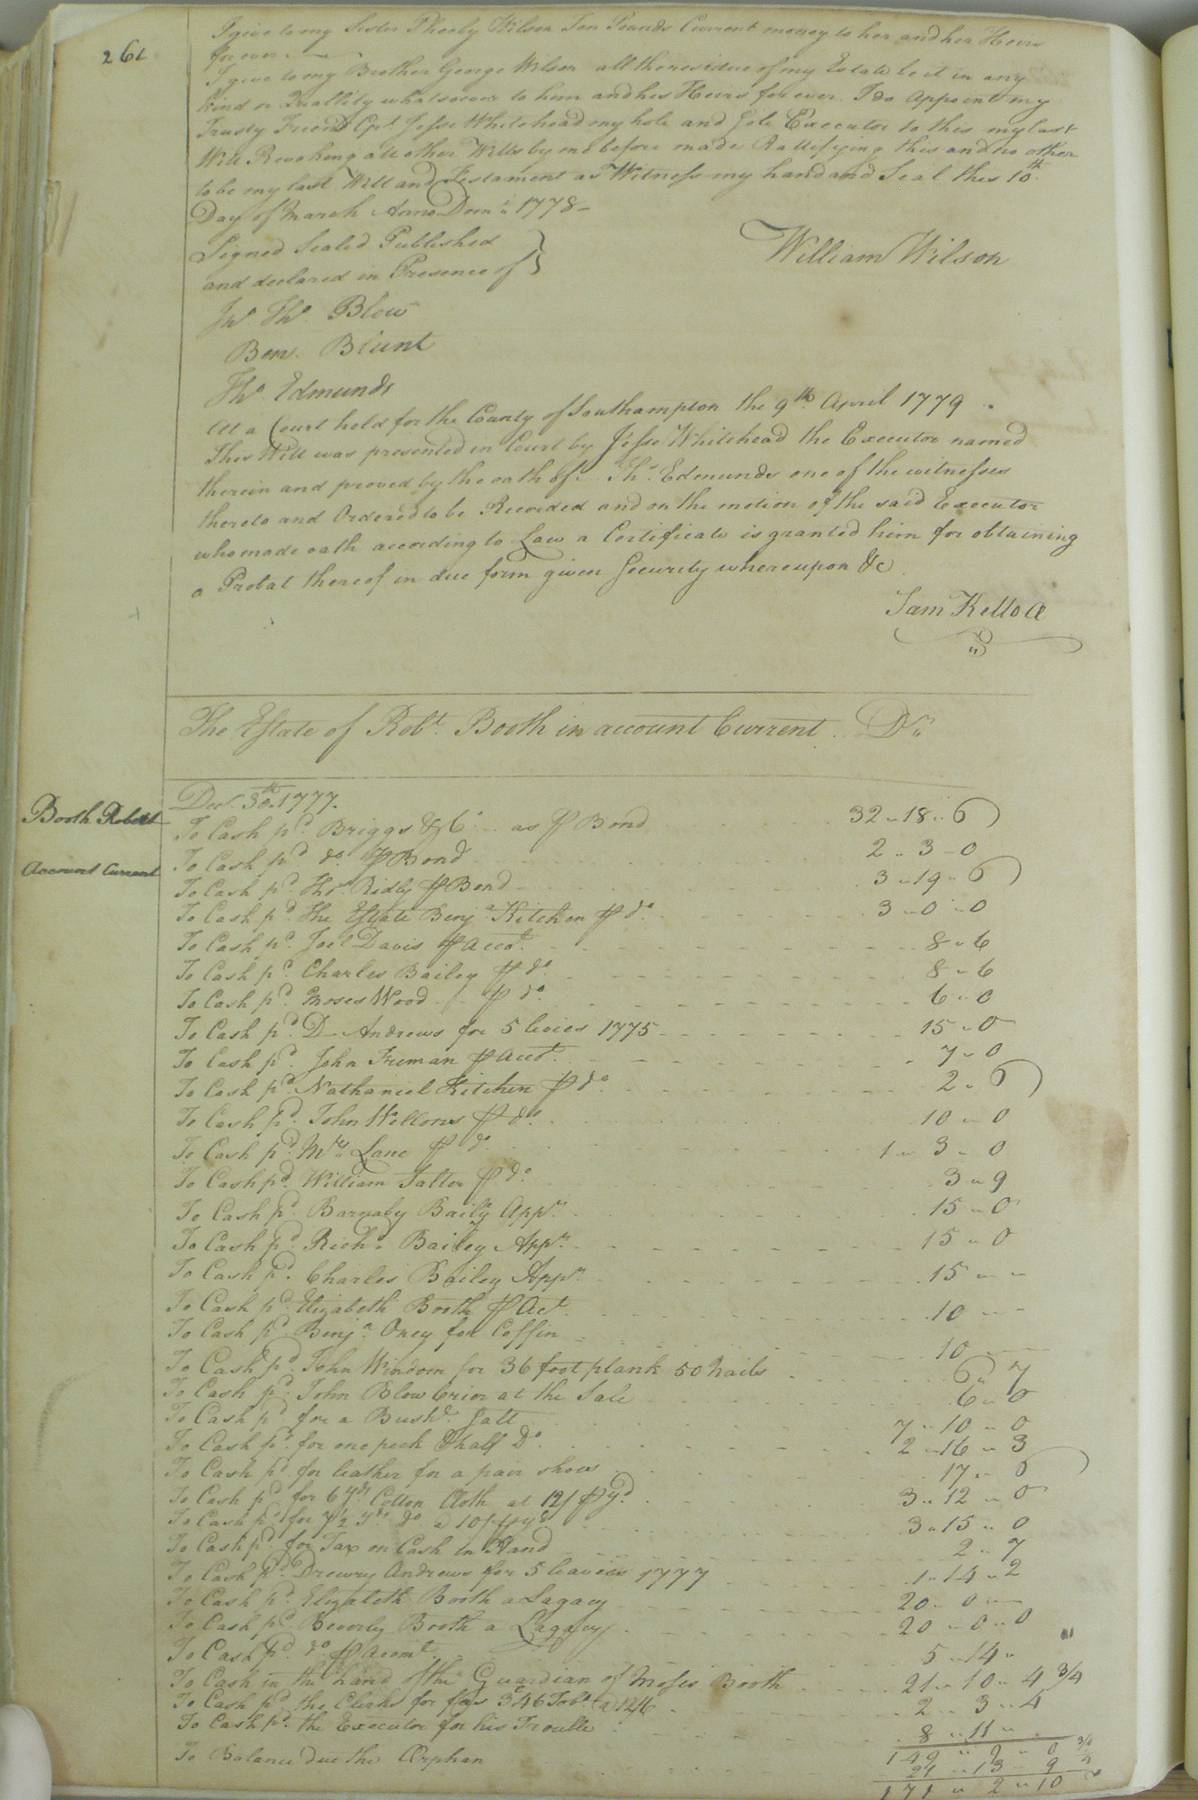 261
I give to my Sister Pheeby Wilson Ten Pounds Current money to her and her Heirs
for ever.
I give to my Brother George Wilson all the residue of my Estate be it in any
Kind or Quallity whatsoever to him and his Heirs for ever. I do Appoint my
Trusty Friend Cpt. Jesse Whitehead my hole and Sole Executor to this my last
Will Revoking all other Wills by me before made Rattifying this and no other
to be my last Will and Testament as Witness my hand and Seal this 10th.
Day of March Anno Dom: 1778 -
Signed Sealed Published
and declared in Presence of
William Wilson
Jno. Ths. Blow
Ben. Blunt
Ths. Edmunds
At a Court held for the County of Southampton the 9th. April 1779
This Will was presented in Court by Jesse Whitehead the Executor named
therein and proved by the oath of Ths. Edmunds one of the witnesses
thereto and Ordered to be Recorded and on the motion of the said Executor
who made oath according to Law a Certificate is granted him for obtaining
a Probat thereof in due form given Security whereupon &c.
Sam Kello Cl
The Estate of Robt. Booth in account Current Dr.
Booth Robert
Account Current
Decr. 30th. 1777.
To Cash pd. Briggs & Co. as ⅌ Bond 32 " 18 " 6
To Cash pd. do. ⅌ Bond 2 " 3 - 0
To Cash pd. Ths. Ridly ⅌ Bond 3 " 19 " 6
To Cash pd. The Estate Benja. Kitchen ⅌ do. 3 - 0 - 0
To Cash pd. Joel Davis ⅌ Accot. 8 " 6
To Cash pd. Charles Bailey ⅌ do. 8 " 6
To Cash pd. Moses Wood ⅌ do. 6 " 0
To Cash pd. D Andrews for 5 levies 1775 15 " 0
To Cash pd. John Truman ⅌ Accot. 7 " 0
To Cash pd. Nathaniel Kitchen ⅌ do. 2 " 6
To Cash pd. John Wellons ⅌ do. 10 " 0
To Cash pd. Mrs. Lane ⅌ do. 1 " 3 " 0
To Cash pd. William ⅌ do. 3 " 9
To Cash pd. Barnaby Baily Appr. 15 " 0
To Cash pd. Richd. Bailey Appr. 15 " 0
To Cash pd. Charles Bailey Appr. 15 " -
To Cash pd. Elizabeth Booth ⅌ Act. 10 - -
To Cash pd. Benja. Oney for Coffin 10
To Cash pd. John Windom for 36 foot plank 50 nails 6 " 7
To Cash pd. John Blow Crier at the Sale 6 " 0
To Cash pd. for a Bushl. Salt 7 " 10 " 0
To Cash pd. for one peck & half Do. 2 " 16 " 3
To Cash pd. for leather for a pair shoes 17 " 6
To Cash pd. for 6 yds. Cotton Cloth at 12/ ⅌ yd. 3 " 12 " 0
To Cash pd. for 7½ yds. do a 10/ ⅌ yd. 3 " 15 " 0
To Cash pd. for Tax on Cash in Hand 2 " 7
To Cash pd. Drewry Andrews for 5 leavies 1777 1 " 14 " 2
To Cash pd. Elizabeth Booth a Lagacy 20 " 0 "
To Cash pd. Beverly Booth a Lagacy 20 " 0 " 0
To Cash pd. do. ⅌ Acomt. 5 " 14 "
To Cash in the hand of the Guardian of Moses Booth 21 " 10 " 4 3/4
To Cash pd. the Clerks for fees 346 Tobo. a 12/6 2 " 3 " 4
To Cash pd. the Executor for his Trouble 8 " 11 "
149 " 9 " 0 3/4
To Balance due the Orphan 21 " 13 " 9
171 " 2 " 10